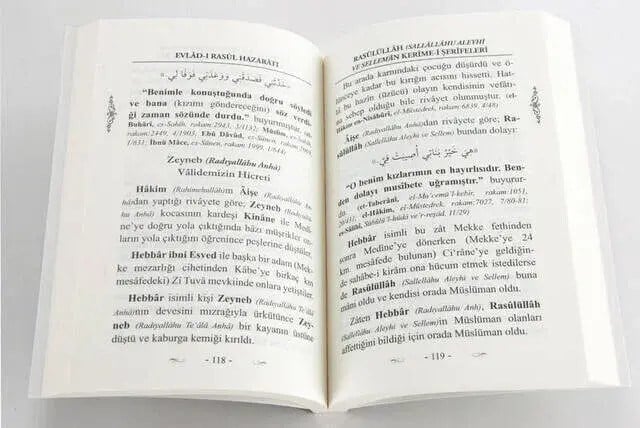 EVLÂD-I RASÛL HAZARÂTI
«حَدَّثَنِي فَصَدَقَنِي وَوَعَدَنِي فَوَفَى لِي»
"Benimle konuştuğunda doğru söyledi
ve bana (kızımı göndereceğini) söz verdi,
ği zaman sözünde durdu." buyurmuştur.
Buhârî, es-Sahîh, rakam:2943, 3/1132; Müslim,
rakam:2449, 4/1903; Ebû Dâvûd, es-Sünen, rakam:
1/631; İbnü Mâce, es-Sünen, rakam:1999, 1/644)
Zeyneb (Radıyallâhu Anhâ)
Vâlidemizin Hicreti
Hâkim (Rahimehullâh)ın Âişe (Radıyallâhu
dan yaptığı rivâyete göre; Zeyneb (Radıyallâ-
hu Anhâ) kocasının kardeşi Kinâne ile Medî-
ne'ye doğru yola çıktığında bâzı müşrikler
ların yola çıktığını öğrenince peşlerine düştüler.
Hebbâr ibni Esved ile başka bir adam (Mek-
ke mezarlığı cihetinden Kâbe'ye birkaç km
mesafedeki) Zî Tuvâ mevkiinde onlara yetiştiler.
Hebbâr isimli kişi Zeyneb (Radıyallâhu Te'âlâ
Anhâ)nın devesini mızrağıyla ürkütünce Zey-
neb (Radıyallâhu Te'âlâ Anhâ) bir kayanın üstüne
düştü ve kaburga kemiği kırıldı.
- 118 -
RASÛLÜLLÂH (SALLÂLLÂHU ALEYHİ
VE SELLEM)İN KERÎME-İ ŞERÎFELERİ
Bu arada karnındaki çocuğu düşürdü ve ö-
lünceye kadar bu kırığın acısını hissetti. Hat-
tâ bu hazin (üzücü) olayın kendisinin vefâ-
tına sebep olduğu bile rivâyet olunmuştur. (el-
Hâkim en-Nîsâbûrî, el-Müstedrek, rakam:6839, 4/48)
Âişe (Radıyallâhu Anhâ)dan rivâyete göre; Ra-
sûlüllâh (Sallellâhu Aleyhi ve Sellem) bundan dolayı:
«هِيَ خَيْرُ بَنَاتِي أُصِيبَتْ فِيَّ»
"O benim kızlarımın en hayırlısıdır. Ben-
den dolayı musibete uğramıştır." buyurur-
du. (et-Taberânî, el-Mu'cemü'l-kebîr, rakam:1051,
20/431; el-Hâkim, el-Müstedrek, rakam:7027, 7/80-81;
es-Sâlihî, Sübülü'l-hüdâ ve'r-reşâd, 11/29)
Hebbâr isimli bu zât Mekke fethinden
sonra Medîne'ye dönerken (Mekke'ye 24
km. mesafede bulunan) Ci'râne'ye geldiğin-
de sahâbe-i kirâm ona hücum etmek istedilerse
de Rasûlüllâh (Sallellâhu Aleyhi ve Sellem) buna
mâni oldu ve kendisi orada Müslüman oldu.
Zâten Hebbâr (Radıyallâhu Anh), Rasûlüllâh
(Sallellâhu Aleyhi ve Sellem)in Müslüman olanları
affettiğini bildiği için orada Müslüman oldu.
- 119 -